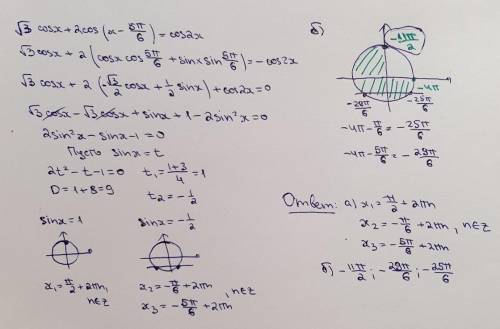 √3 cosx + 2cos(x - 5π/6) = cos2x
√3 cosx + 2(cosx cos 5π/6 + sinx sin 5π/6) = -cos2x
√3 cosx + 2(-√3/2 cosx + 1/2 sinx) + cos2x = 0
√3 cosx - √3 cosx + sinx + 1 - 2sin²x = 0
2sin²x - sinx - 1 = 0
Пусть sinx = t
2t² - t - 1 = 0 t₁ = 1+3/4 = 1
D = 1 + 8 = 9 t₂ = -1/2
sinx = 1 sinx = -1/2
x₁ = π/2 + 2πn, n∈Z
x₂ = -π/6 + 2πn, n∈Z
x₃ = -5π/6 + 2πn
б)
-11π/2
-4π
-29π/6 -25π/6
-4π - π/6 = -25π/6
-4π - 5π/6 = -29π/6
Ответ: а) x₁ = π/2 + 2πn
x₂ = -π/6 + 2πn, n∈Z
x₃ = -5π/6 + 2πn
б) -11π/2; -29π/6; -25π/6